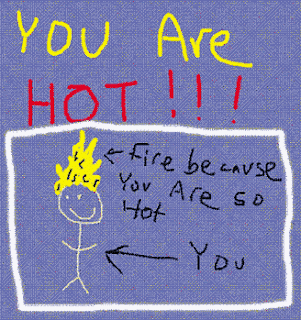 YOU Are
HOT!!!
Fire because
You Are so
Hot
You